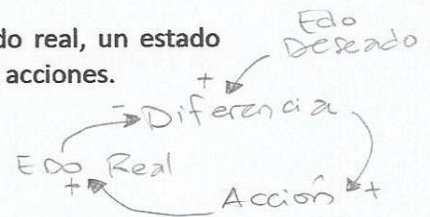 do real, un estado
acciones.
Edo
Deseado
+
- Diferencia
Edo Real
+
Acción +